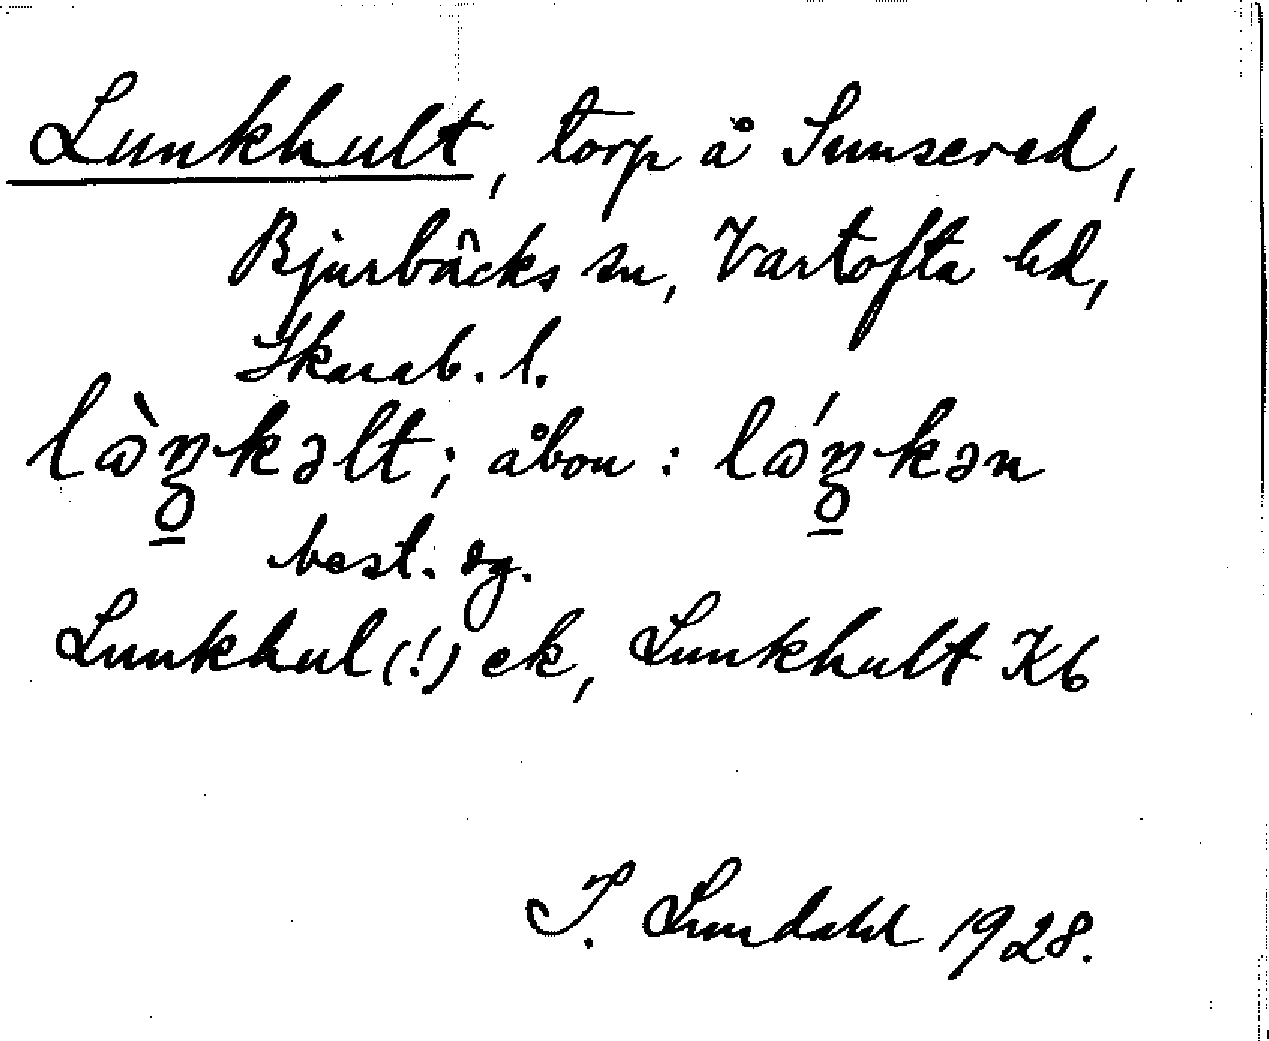 Lunkhult, torp å Sunsered,
Bjurbäcks sn, Vartofta hd,
Skarab. l.
lὼŋkəlt; åbon: lώŋkən
best. sg.
Lunkhul(!) ek, Lunkhult Kb
I. Lundahl 1928.